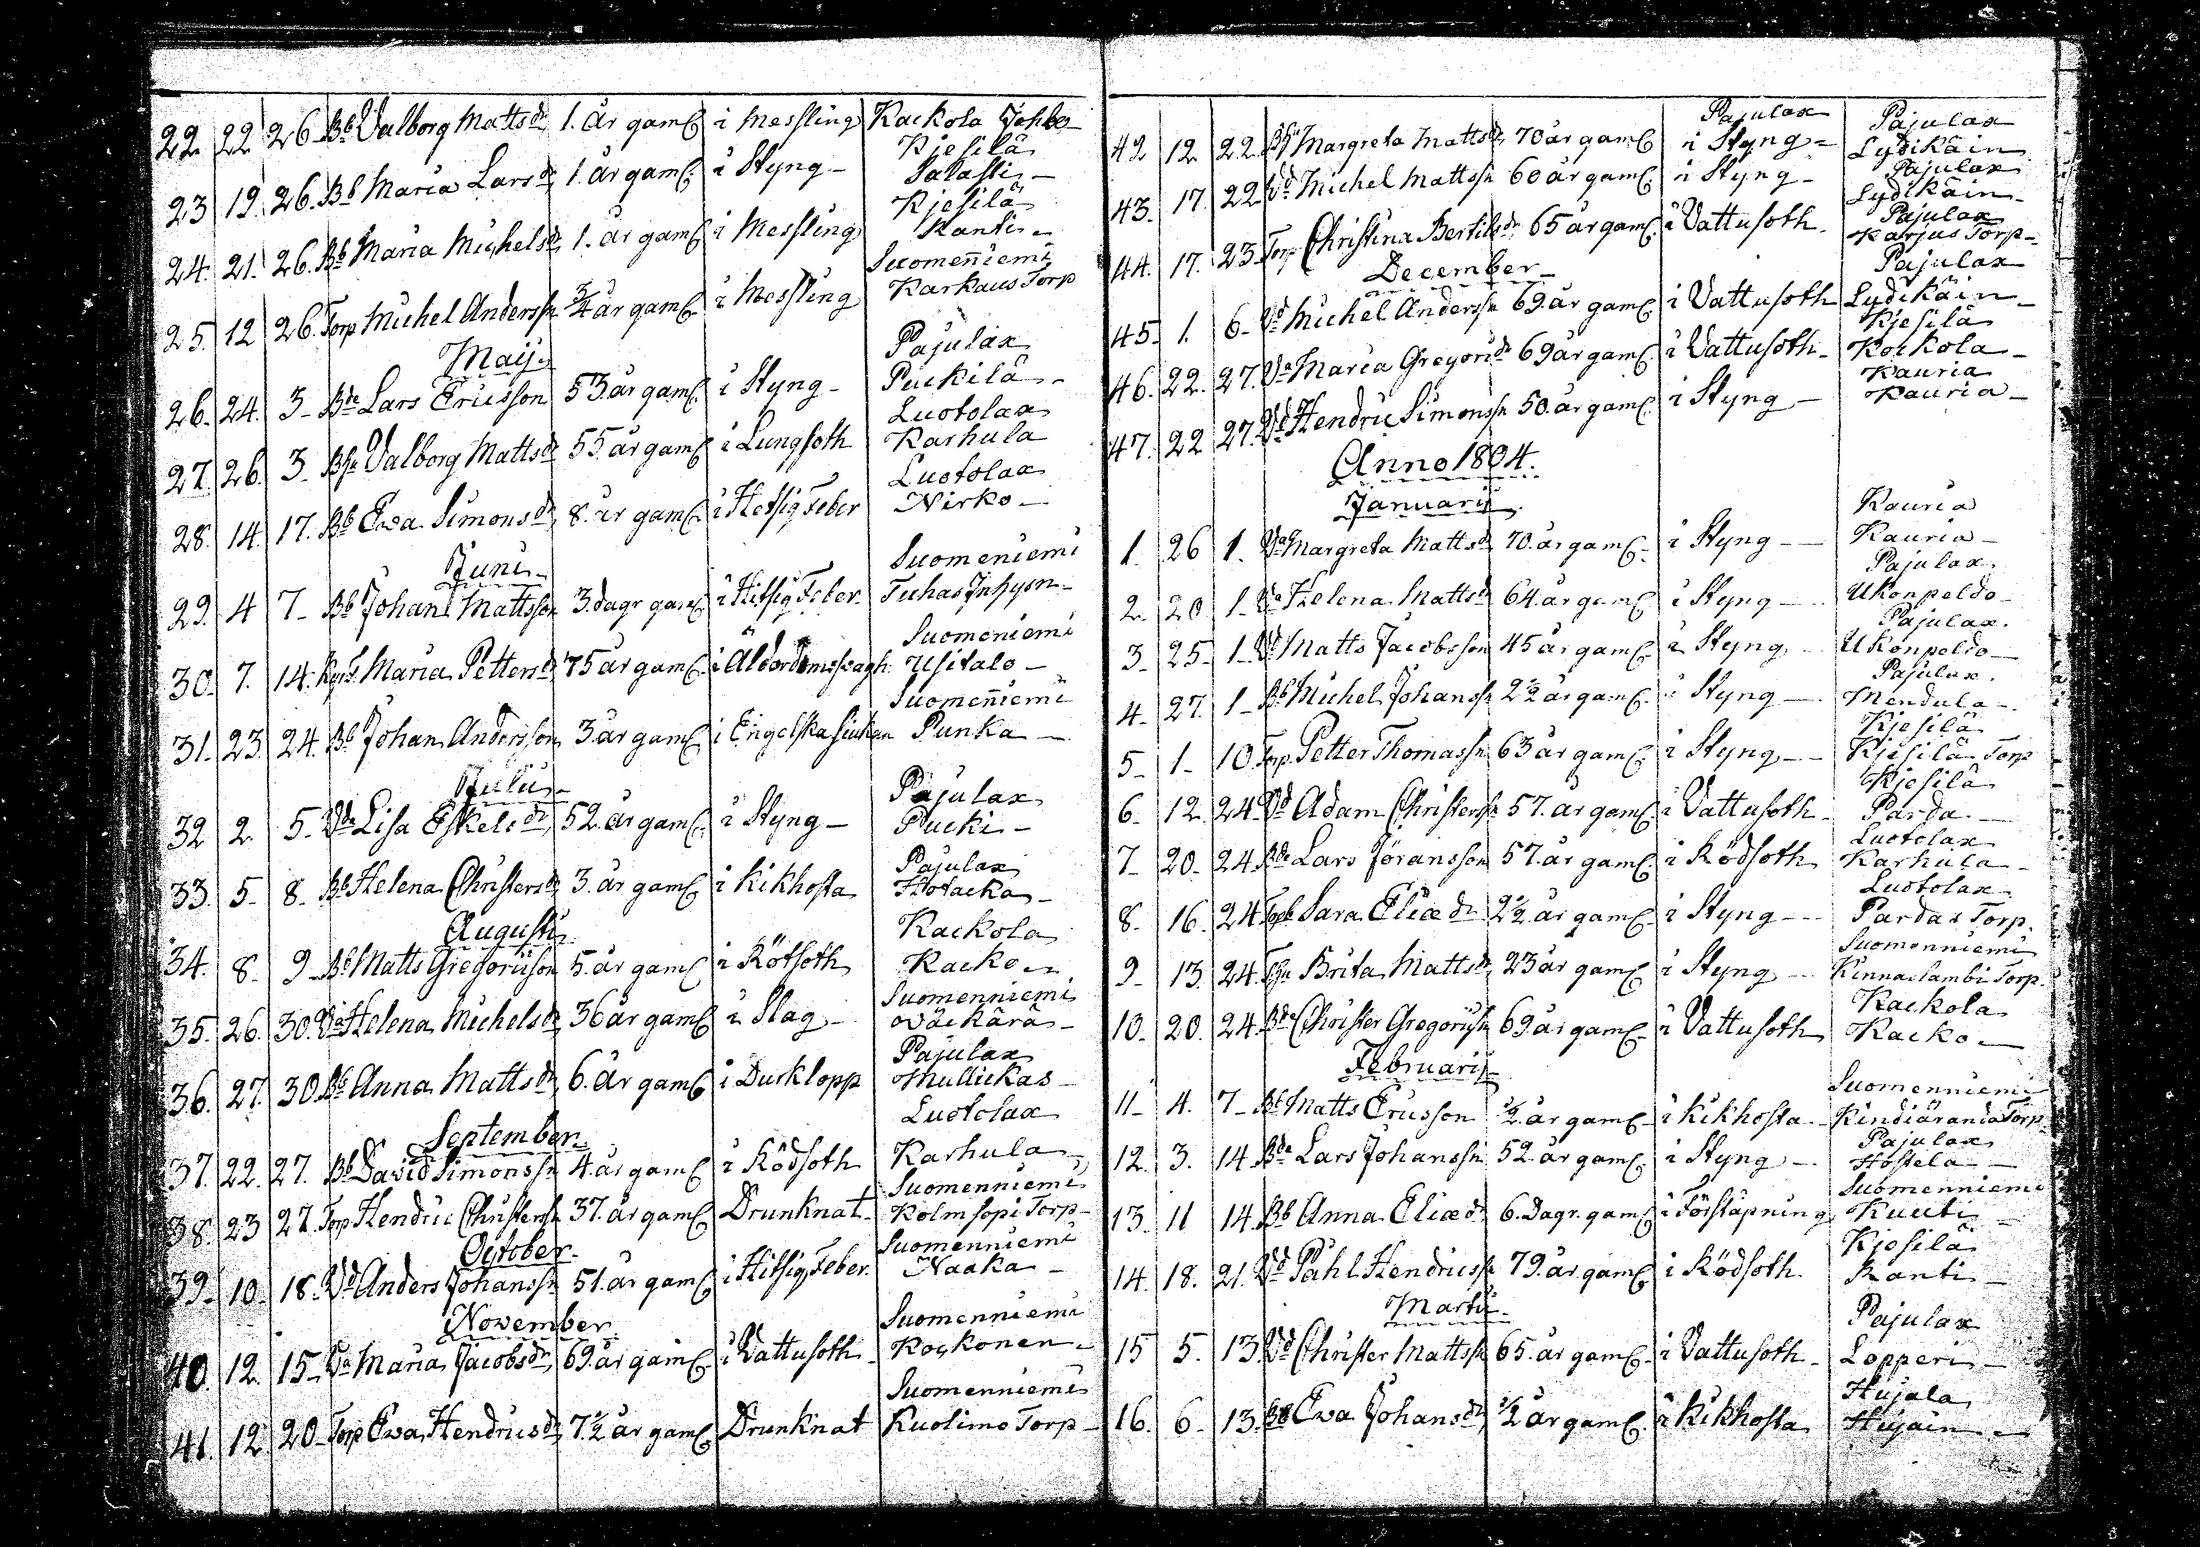 22. 22 26. Bb Valborg Mattsdr 1. år gamㄥ i Messling Kackola Johbo
23 19. 26. Bb Maria Larsdr 1. år gamㄥ i Styng - Kjesilä Salasti -
24. 21. 26. Bb Maria Michelsdr 1. år gamㄥ i Messling Kjesilä Kanti -
25. 12 26. Torp Michel Anderssn 3/4 år gamㄥ i Messling Suomeniemi Karkaus Torp
Maij
26. 24. 3 - Bde Lars Ericsson 53. år gamㄥ i Styng - Pajulax Puckilä -
27. 26. 3 - Bhu Valborg Mattsdr 55 år gamㄥ i Lungsoth Luotolax Karhula
28. 14. 17. Bb Ewa Simonsdr 8. år gamㄥ i Hetsig Feber Luotolax Nirko -
Junii
29. 4 7 - Bb Johan Mattsson 3. dagr gamㄥ i Hitsig Feber - Suomeniemi Tuhas Inhysn -
30. 7. 14. Maria Pettersdr 75 år gamㄥ i Ålderdomsvagh Suomeniemi Usitalo -
31. 23. 24. Bb Johan Andersson 3. år gamㄥ i Engelska siukan Suomeniemi Punka -
Julii
32 2. 5 - Vda Lisa Eskelsdr 52. år gamㄥ i Styng - Pajulax Pucki -
33. 5 - 8 - Bb Helena Christersdr 3. år gamㄥ i kikhosta Pajulax Hotacka -
Augusti
34. 8 - 9 - Bb Matts Gregoriison 5. år gamㄥ i Rötsoth Kackola Kacko -
35. 26. 30. Va Helena Michelsdr 36 år gamㄥ i Slag - Suomenniemi Wäckärä -
36. 27. 30. Bb Anna Mattsdr 6. år gamㄥ i Durklopp Pajulax Mullickas -
September
37. 22. 27. Bb David Simonssn 4. år gamㄥ i Rödsoth Luotolax Karhula -
38. 23 27. Torp Hendric Christerssn 37. år gamㄥ Drunknat - Suomenniemi Kolmsopi Torp -
October
39 - 10. 18 - Vd Anders Johanssn 51. år gamㄥ i Hitsig Feber. Suomenniemi Naaka -
November
40. 12. 15 - Va Maria Jacobsdr 69. år gamㄥ i Vattusoth - Suomenniemi Kockonen -
41. 12. 20 - Torp Ewa Hendricsdr 7½ år gamㄥ Drunknat Suomenniemi Kuolimo Torp -
42. 12. 22. Bhu Margreta Mattsdr 70 år gamㄥ i Styng - Pajulax Pajulax Lydikäin
43 - 17. 22 - Vd Michel Mattssn 60 år gamㄥ i Styng - Pajulax Lydikäin -
44. 17. 23 - Torp Christina Bertilsdr 65 år gamㄥ i Vattusoth - Pajulax Karjus Torp -
December -
45 - 1. 6 - Vd Michel Anderssn 69. år gamㄥ i Vattusoth Pajulax Lydikäin -
46. 22. 27. Va Maria Gregoridr 69 år gamㄥ i Vattusoth - Kjesilä Kockola -
47. 22 27. Vd Hendric Simonssn 50. år gamㄥ i Styng - Kauria Kauria -
Anno 1804.
Januarii
1. 26 1. Va Margreta Mattsdr 70. år gamㄥ i Styng - Kauria Kauria -
2. 20 1 - Va Helena Mattsdr 64. år gamㄥ i Styng - Pajulax Ukonpeldo -
3 - 25 - 1 - Vd Matts Jacobsson 45 år gamㄥ i Styng - Pajulax. Ukonpeldo -
4 - 27. 1 - Bb Michel Johanssn 2½ år gamㄥ i Styng - Pajulax. Mendula -
5 - 1 - 10. Torp. Petter Thomassn 63 år gamㄥ i Styng - Kjesilä Kjesilä Torp
6 - 12. 24 - Vd Adam Christerssn 57. år gamㄥ i Vattusoth - Kjesilä Parda -
7 - 20 - 24. Bde Lars Jöransson 57. år gamㄥ i Rödsoth Luotolax Karhula -
8 - 16. 24. Torb Sara Eliædr 2½ år gamㄥ i Styng - Luotolax Pardas Torp.
9 - 13. 24. Brita Mattsdr 23 år gamㄥ i Styng - Suomenniemi Kinnaslambi Torp.
10 - 20. 24. Bde Christer Gregoriissn 69. år gamㄥ i Vattusoth Kackola Kacko -
Februarii
11 - 4. 7 - Bb Matts Ericsson ½ år gamㄥ i kikhosta - Suomenniemi Kindiäranda Torp.
12. 3. 14. Bde Lars Johanssn 52 år gamㄥ i Styng - Pajulax Hostela -
13. 11 14. Bb Anna Eliædr 6. Dagr. gamㄥ i Förstäpning Suomenniemi Kuuti -
14. 18. 21. Vd Påhl Hendricssn 79. år gamㄥ i Rödsoth. Kjesilä Kanti -
Martii
15 5. 13. Vd Christer Mattssn 65. år gamㄥ i Vattusoth - Pajulax Lopperi -
16. 6 - 13. Bb Ewa Johansdr ½ år gamㄥ i kikhosta Hujala Hujain -